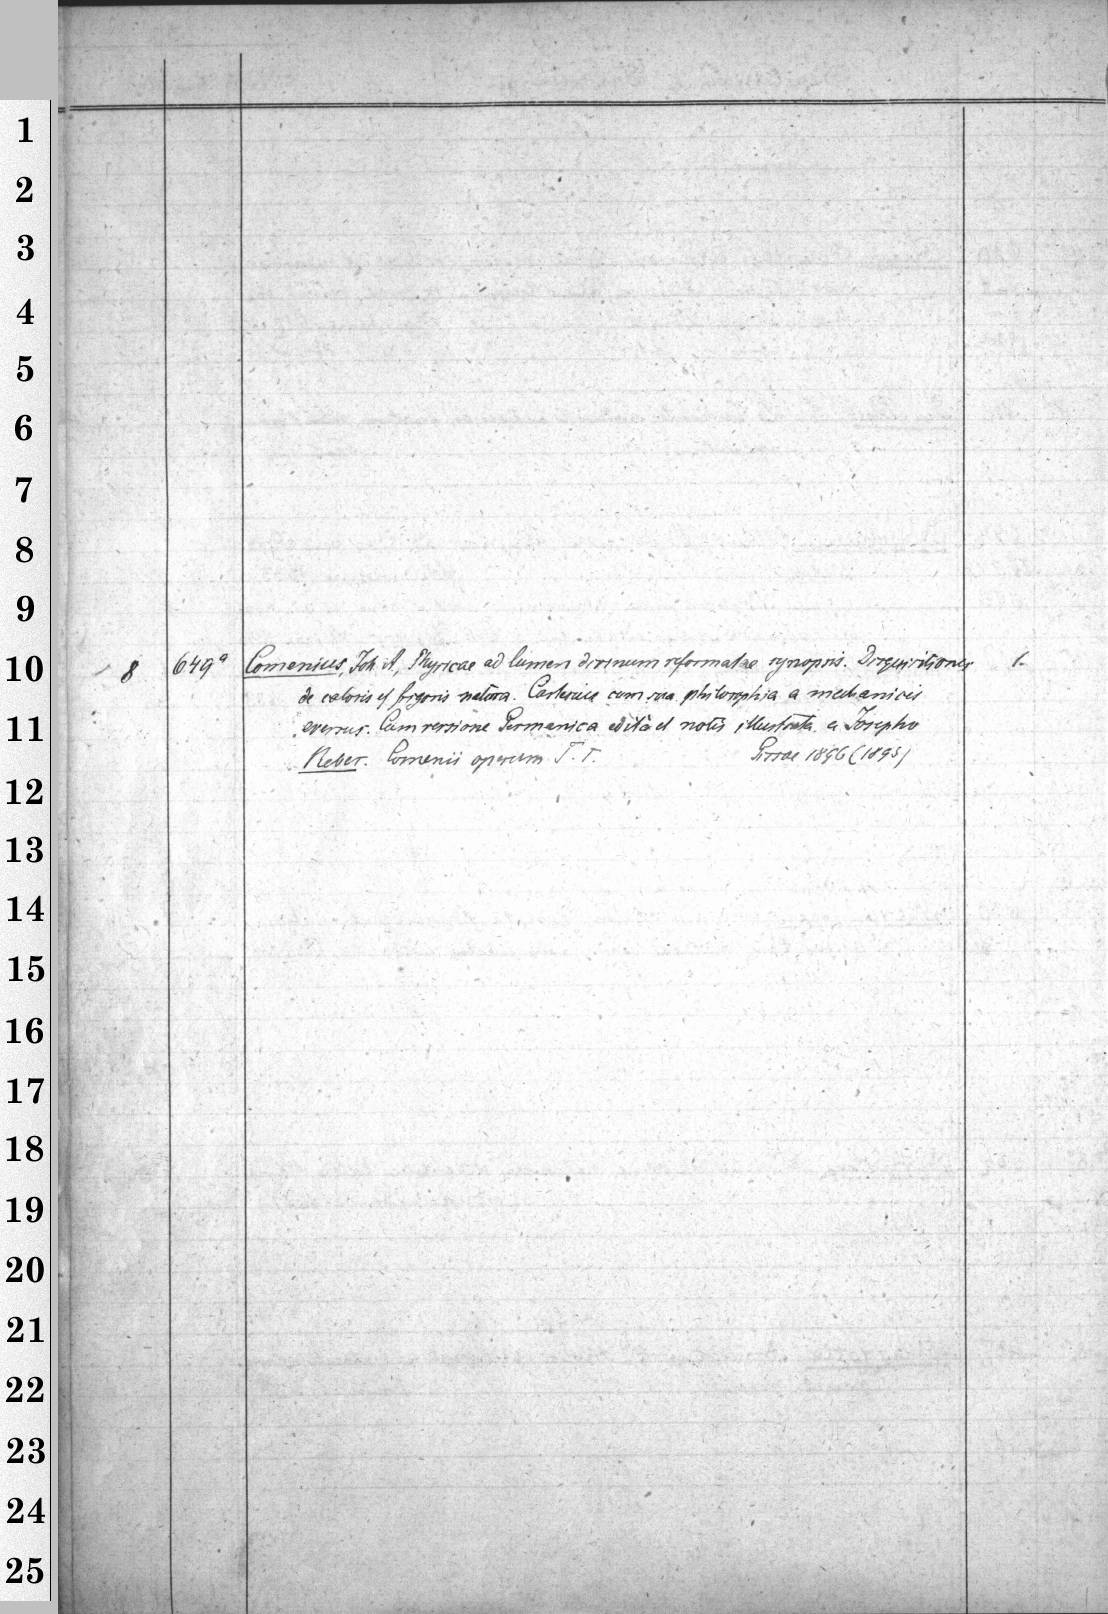 1
2
3
4
5
6
7
8
9
10
11
12
13
14
15
16
17
18
19
20
21
22
23
24
25
8 649a Comenius, Joh. A, Physicae ad lumen divinum reformatae synopsis. Disquisitiones 1.
de caloris et frigoris natura. Cartesius cum sua philosophia a mechanicis
eversus. Cum versione Germanica edita et notis illustrata a Josepho
Reber. Comenii operum T. I. Gissae 1896 (1895)